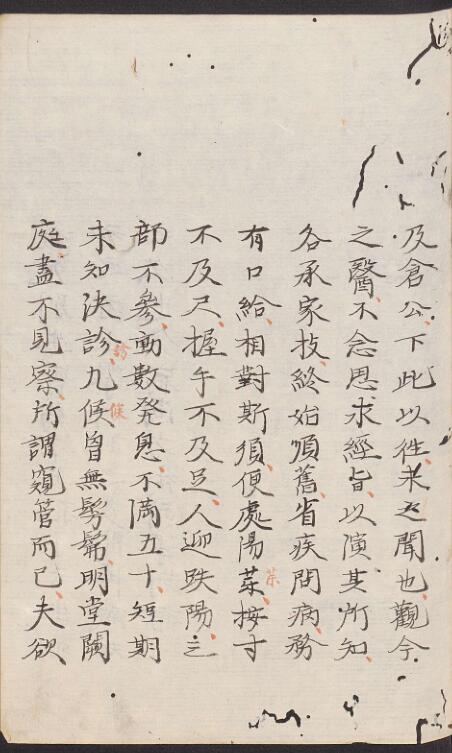 及倉公下此以徃未之聞也觀今
之醫不念思求經旨以演其所知
各承家技終始順舊省疾問病務
有口給相對斯須便處湯菜按寸
不及尺握午不及足人迎趺陽三
部不參動數発息不滿五十短期
未知決診九候曽無髣髴明堂闕
庭盡不見察所謂窺管而已夫欲